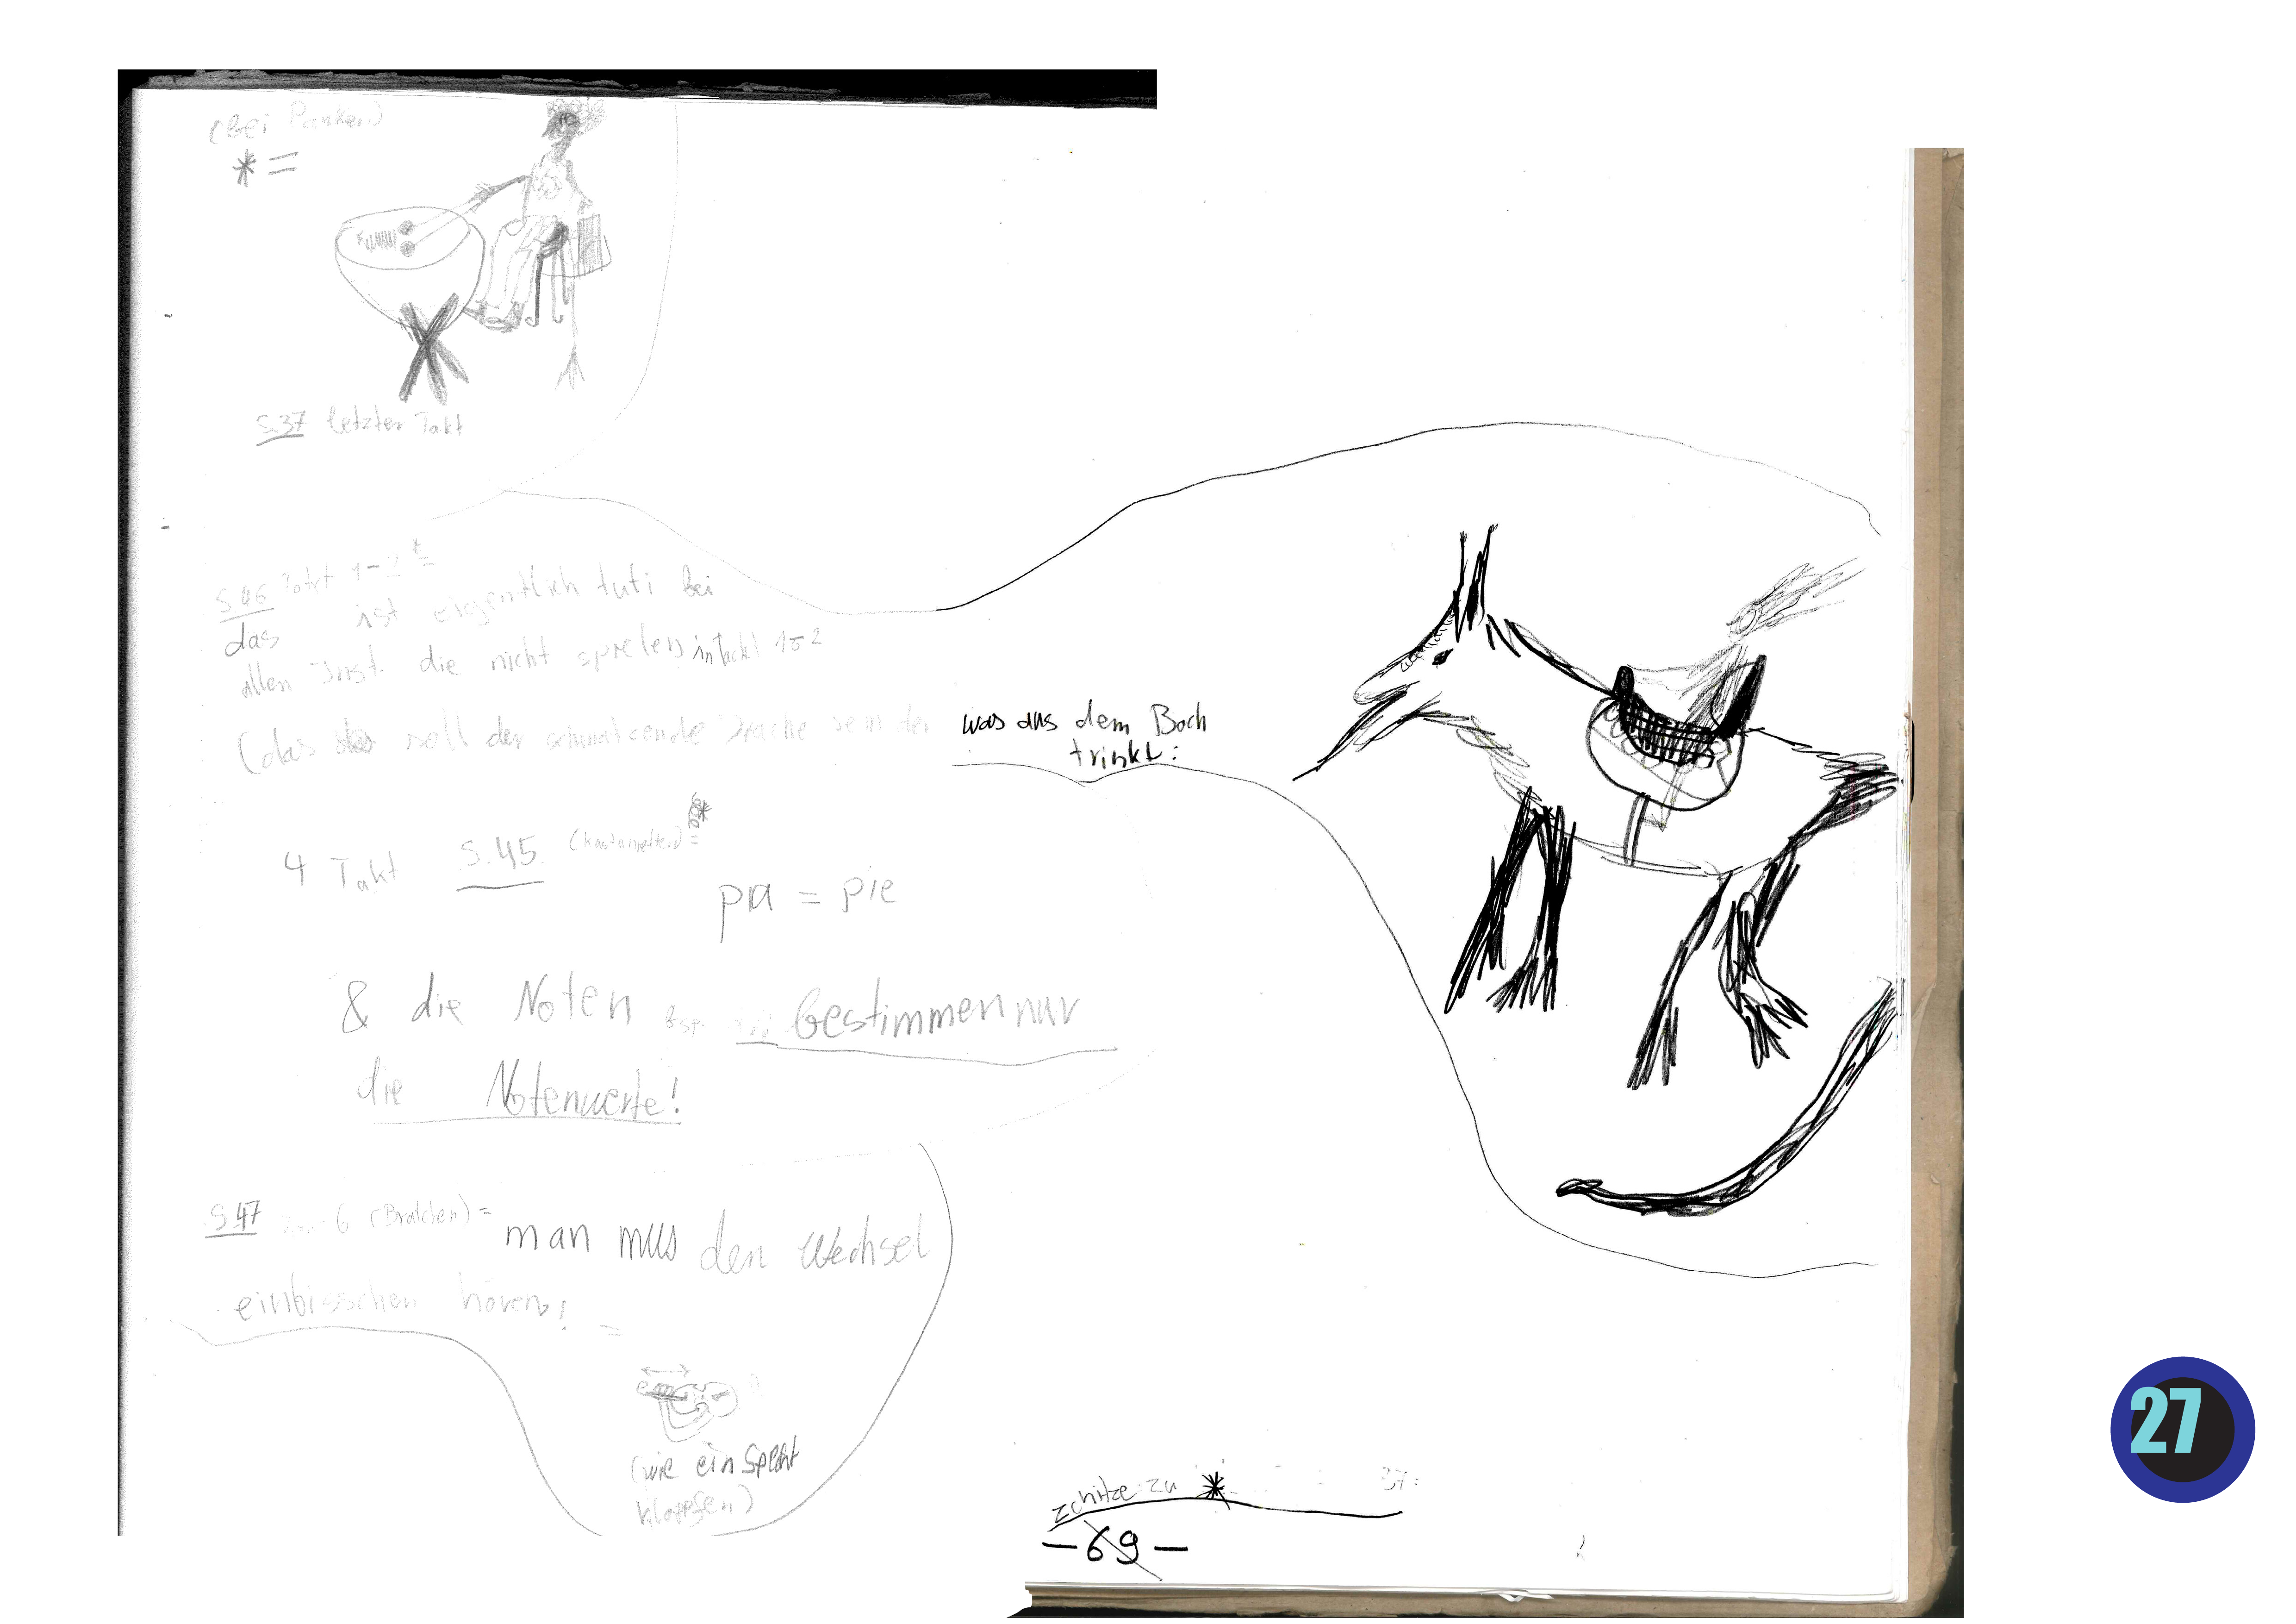 (bei Pauken)
* =
S.37 letzter Takt
S.46 Takt 1-2 * =
das ist eigentlich tuti bei
allen Inst. die nicht spielen in Takt 1-2
(das soll der schmatzende Drache sein der was aus dem Bach
trinkt:
4 Takt S.45 (Kastanietten) = *
pia = pie
& die Noten Bsp. bestimmen nur
die Notenwerte!
S.47 6 (Bratchen) = man mus den Wechsel
einbisschen hören! =
(wie ein Specht
klopfen)
zchitze zu * 37:
-69-
27